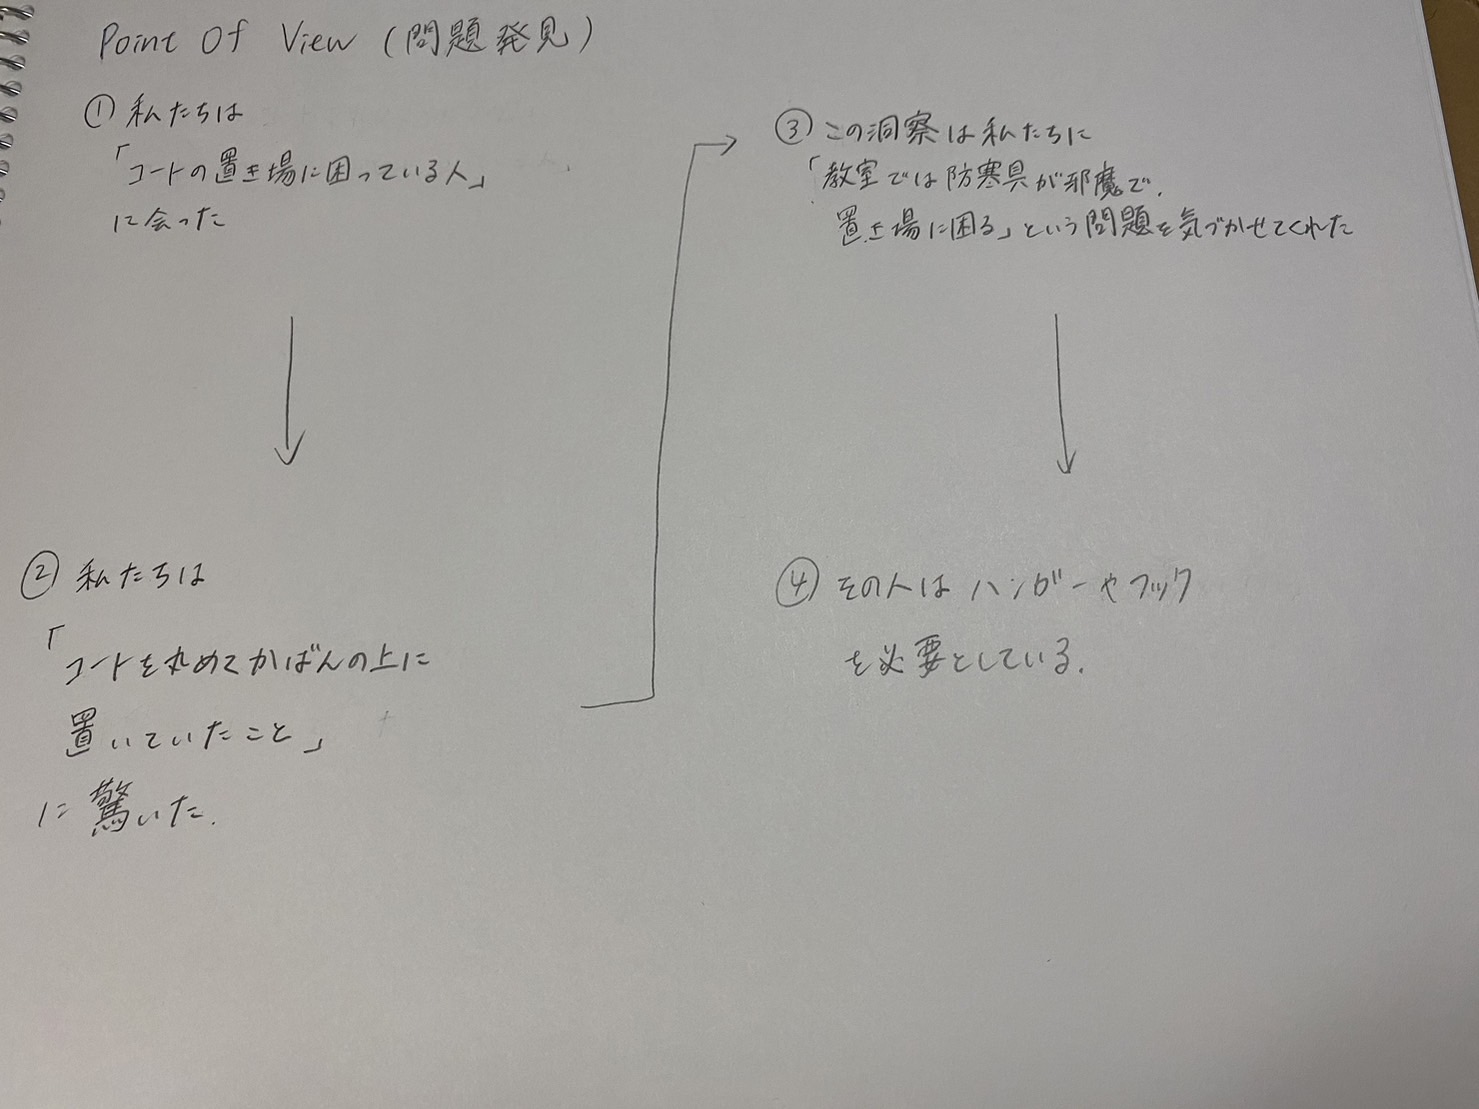 Point Of View (問題発見)
① 私たちは
「コートの置き場に困っている人」
に会った
② 私たちは
「コートを丸めてかばんの上に
置いていたこと」
に驚いた.
③ この洞察は私たちに
「教室では防寒具が邪魔で,
置き場に困る」という問題を気づかせてくれた
④ その人は ハンガーやフック
を必要としている.